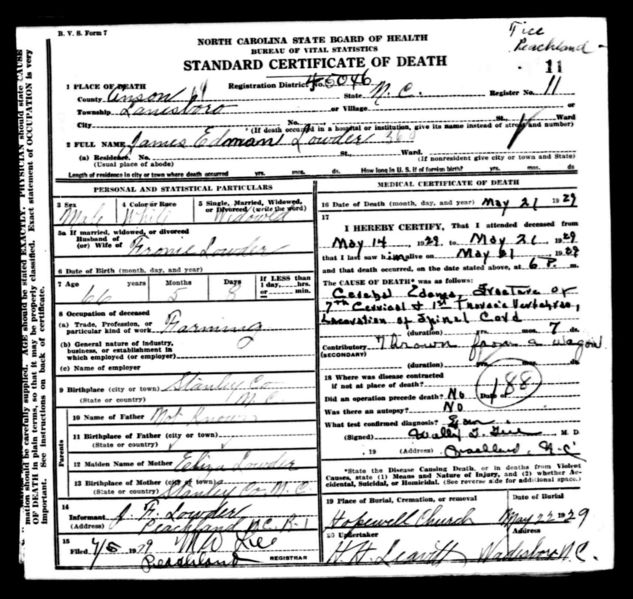 B. V. S. Form 7
Tice
Peachland
NORTH CAROLINA STATE BOARD OF HEALTH
BUREAU OF VITAL STATISTICS
STANDARD CERTIFICATE OF DEATH
11
1 PLACE OF DEATH
Registration District No. 4-5046
Register No. 11
County Anson
State N. C.
Township Lanesboro or Village or
City No. St. Ward
* (If death occurred in a hospital or institution, give its name instead of street and number)
2 FULL NAME James Edman Lowder
(a) Residence, No. St. Ward.
(Usual place of abode) (If nonresident give city or town and State)
Length of residence in city or town where death occurred yrs. mos. ds. How long in U. S. if of foreign birth? yrs. mos. ds.
PERSONAL AND STATISTICAL PARTICULARS
3 Sex 4 Color or Race 5 Single, Married, Widowed, or Divorced (write the word)
Male White Widowed
5a If married, widowed, or divorced
Husband of
(or) Wife of Lowder
6 Date of Birth (month, day, and year)
7 Age 66 years Months 5 Days 8 If LESS than 1 day, hrs. or min.
8 Occupation of deceased
(a) Trade, Profession, or particular kind of work Farming
(b) General nature of industry, business, or establishment in which employed (or employer)
(c) Name of employer
9 Birthplace (city or town) Stanley Co
(State or country) N.C.
Parents
10 Name of Father Not Known
11 Birthplace of Father (city or town)
(State or country)
12 Maiden Name of Mother Eliza Lowder
13 Birthplace of Mother (city or town)
(State or country) Stanley Co N.C.
14 Informant J. F. Lowder
(Address) Peachland N.C. R-1
15 Filed 7/5 1929 Tice
Peachland REGISTRAR
MEDICAL CERTIFICATE OF DEATH
16 Date of Death (month, day, and year) May 21 1929
17
I HEREBY CERTIFY, That I attended deceased from
May 14 1929 to May 21 1929
that I last saw him alive on May 21 1929
and that death occurred, on the date stated above, at 6 P. m.
The CAUSE OF DEATH* was as follows:
Edema, Fracture of
7th Cervical & 1st Thoracic Vertebrae,
Laceration of Spinal Cord
(duration) yrs. mos. 7 ds.
Contributory Thrown from a wagon
(SECONDARY)
(duration) yrs. mos. ds.
18 Where was disease contracted
if not at place of death?
Did an operation precede death? No Date of
188
Was there an autopsy? No
What test confirmed diagnosis?
(Signed) M D
, 19 (Address) N.C.
*State the Disease Causing Death, or in deaths from Violent Causes, state (1) Means and Nature of Injury, and (2) whether Accidental, Suicidal, or Homicidal. (See reverse side for additional space).
19 Place of Burial, Cremation, or removal Date of Burial
Hopewell Church May 22 1929
20 Undertaker Address
H. H. Leavitt Wadesboro N.C.
mation should be carefully supplied. AGE should be stated EXACTLY. PHYSICIAN should state CAUSE
OF DEATH in plain terms, so that it may be properly classified. Exact statement of OCCUPATION is very
important. See instructions on back of certificate.